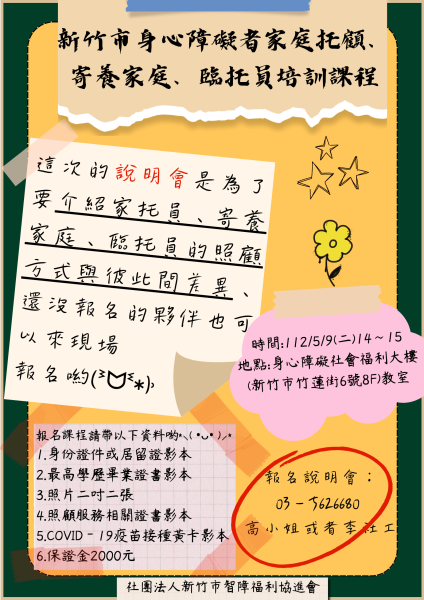 新竹市身心障礙者家庭托顧、
寄養家庭、臨托員培訓課程
這次的說明會是為了
要介紹家托員、寄養
家庭、臨托員的照顧
方式與彼此間差異、
還沒報名的夥伴也可
以來現場
報名喲(
時間:112/5/9(二)14~15
地點:身心障礙社會福利大樓
(新竹市竹蓮街6號8F)教室
報名課程請帶以下資料喲
1.身份證件或居留證影本
2.最高學歷畢業證書影本
3.照片二吋二張
4.照顧服務相關證書影本
5.COVID-19疫苗接種黃卡影本
6.保證金2000元
報名說明會:
03-5626680
高小姐或者李社工
社團法人新竹市智障福利協進會